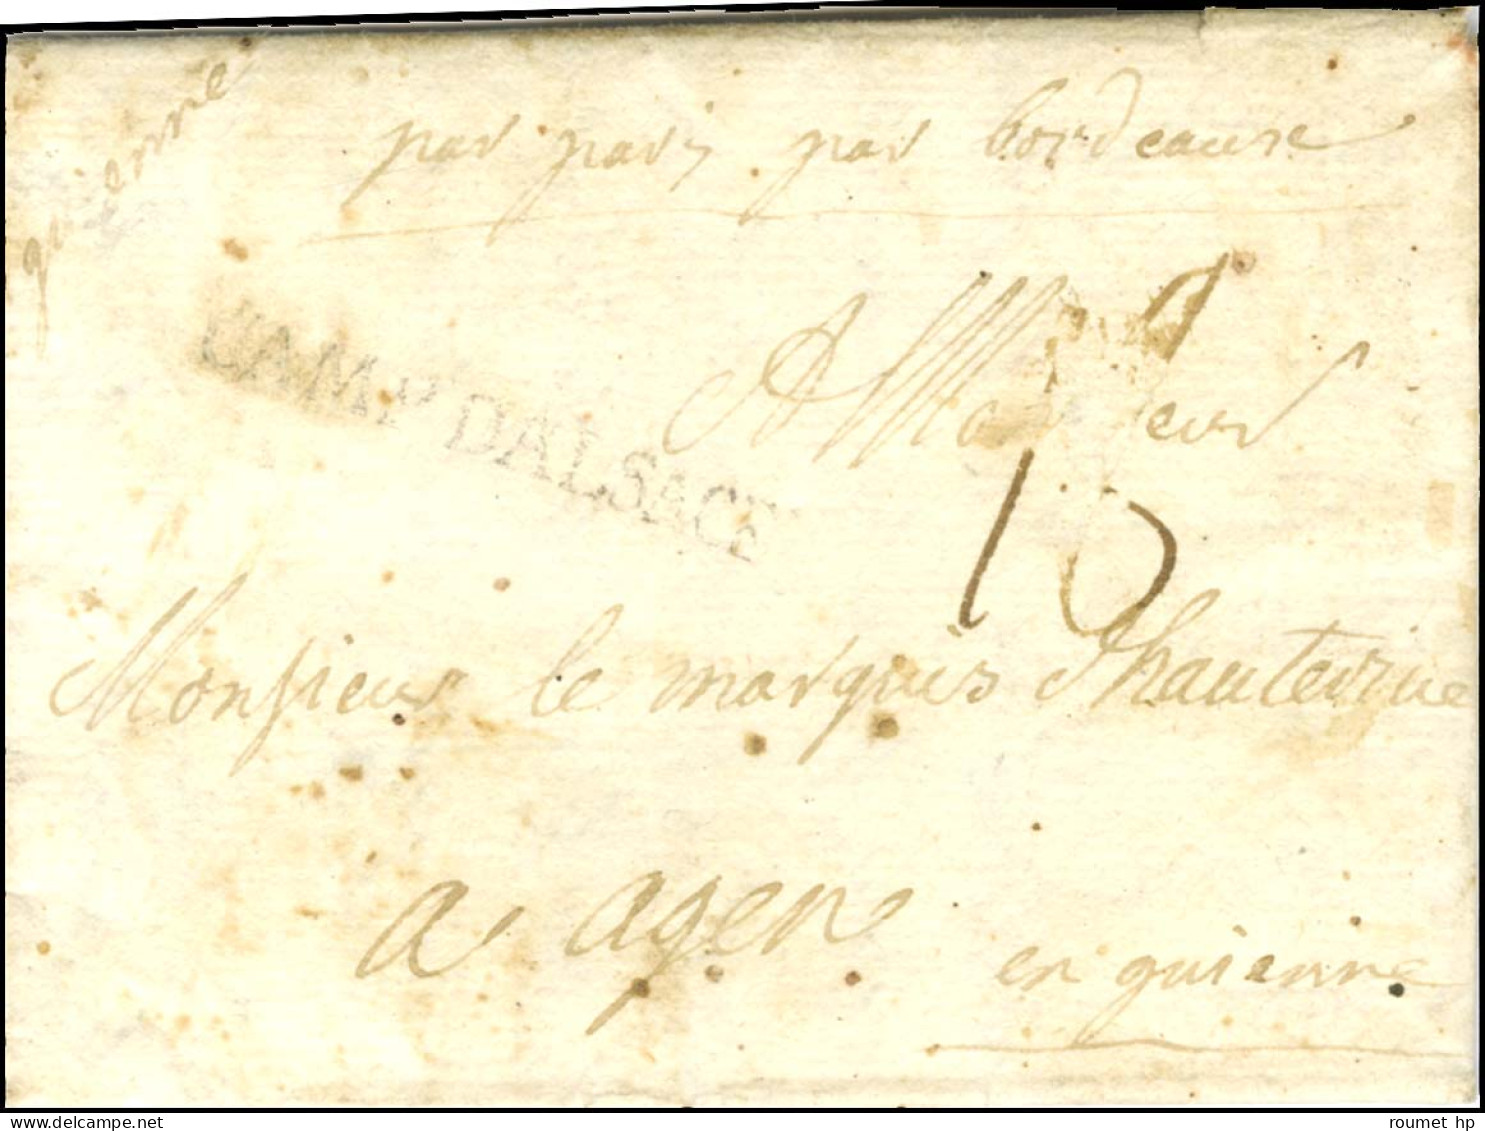 guienne
par paris par bordeaux
CAMP DALSACE
A Monsieur
10
Monsieur le marquis d'hautevine
a agen
en guienne
roumet hp